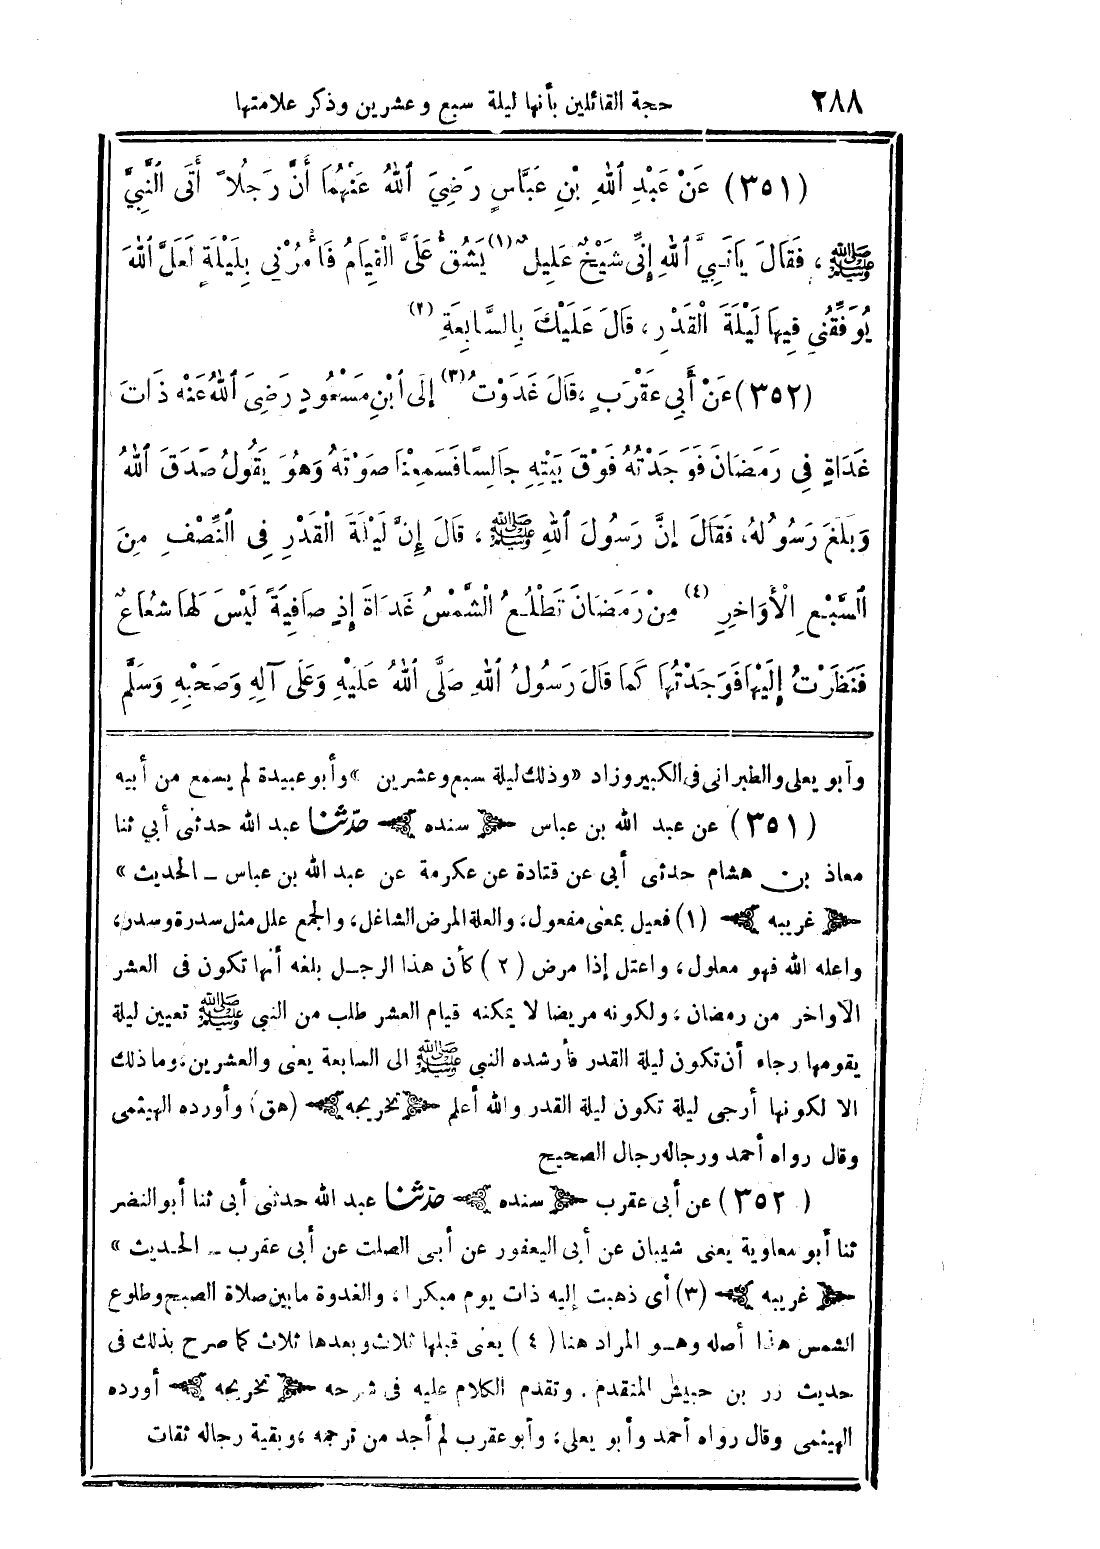 ٢٨٨ حجة القائلين بأنها ليلة سبع وعشرين وذكر علامتها
(٣٥١) عَنْ عَبْدِ اللهِ بْنِ عَبَّاسٍ رَضِيَ اللهُ عَنْهُمَا أَنَّ رَجُلاً أَتَى النَّبِيَّ
ﷺ، فَقَالَ يَانَبِيَّ اللهِ إِنِّي شَيْخٌ عَلِيلٌ (١) يَشُقُّ عَلَيَّ الْقِيَامُ فَأْمُرْنِي بِلَيْلَةٍ لَعَلَّ اللهَ
يُوَفِّقُنِي فِيهَا لَيْلَةَ الْقَدْرِ، قَالَ عَلَيْكَ بِالسَّابِعَةِ (٢)
(٣٥٢) عَنْ أَبِي عَقْرَبٍ، قَالَ غَدَوْتُ (٣) إِلَى ابْنِ مَسْعُودٍ رَضِيَ اللهُ عَنْهُ ذَاتَ
غَدَاةٍ فِي رَمَضَانَ فَوَجَدْتُهُ فَوْقَ بَيْتِهِ جَالِسًا فَسَمِعْنَا صَوْتَهُ وَهُوَ يَقُولُ صَدَقَ اللهُ
وَبَلَّغَ رَسُولُهُ، فَقَالَ إِنَّ رَسُولَ اللهِ ﷺ، قَالَ إِنَّ لَيْلَةَ الْقَدْرِ فِي النِّصْفِ مِنَ
السَّبْعِ الْأَوَاخِرِ (٤) مِنْ رَمَضَانَ تَطْلُعُ الشَّمْسُ غَدَاةَ إِذٍ صَافِيَةً لَيْسَ لَهَا شُعَاعٌ
فَنَظَرْتُ إِلَيْهَا فَوَجَدْتُهَا كَمَا قَالَ رَسُولُ اللهِ صَلَّى اللهُ عَلَيْهِ وَعَلَى آلِهِ وَصَحْبِهِ وَسَلَّمَ
وأبو يعلى والطبرانى فى الكبير وزاد «وذلك ليلة سبع وعشرين» وأبو عبيدة لم يسمع من أبيه
(٣٥١) عن عبد الله بن عباس ﴿ سنده ﴾ حدثنا عبد الله حدثنى أبي ثنا
معاذ بن هشام حدثى أبى عن قتادة عن عكرمة عن عبد الله بن عباس ــ الحديث»
﴿ غريبه ﴾ (١) فعيل بمعنى مفعول، والعلة المرض الشاغل، والجمع علل مثل سدرة وسدر،
واعله الله فهو معلول، واعتل إذا مرض (٢) كأن هذا الرجل بلغه أنها تكون فى العشر
الأواخر من رمضان، ولكونه مريضا لا يمكنه قيام العشر طلب من النبى ﷺ تعيين ليلة
يقومها رجاء أن تكون ليلة القدر فأرشده النبى ﷺ الى السابعة يعنى والعشرين، وما ذلك
الا لكونها أرجى ليلة تكون ليلة القدر والله أعلم ﴿ تخريجه ﴾ (هق) وأورده الهيثمى
وقال رواه أحمد ورجاله رجال الصحيح
(٣٥٢) عن أبى عقرب ﴿ سنده ﴾ حدثنا عبد الله حدثنى أبى ثنا أبو النضر
ثنا أبو معاوية يعنى شيبان عن أبى اليعفور عن أبى الصلت عن أبى عقرب ــ الحديث»
﴿ غريبه ﴾ (٣) أى ذهبت إليه ذات يوم مبكرا، والغدوة ما بين صلاة الصبح وطلوع
الشمس هذا أصله وهو المراد هنا (٤) يعنى قبلها ثلاث وبعدها ثلاث كما صرح بذلك فى
حديث زر بن حبيش المتقدم. وتقدم الكلام عليه فى شرحه ﴿ تخريجه ﴾ أورده
الهيثمى وقال رواه أحمد وأبو يعلى، وأبو عقرب لم أجد من ترجمه، وبقية رجاله ثقات